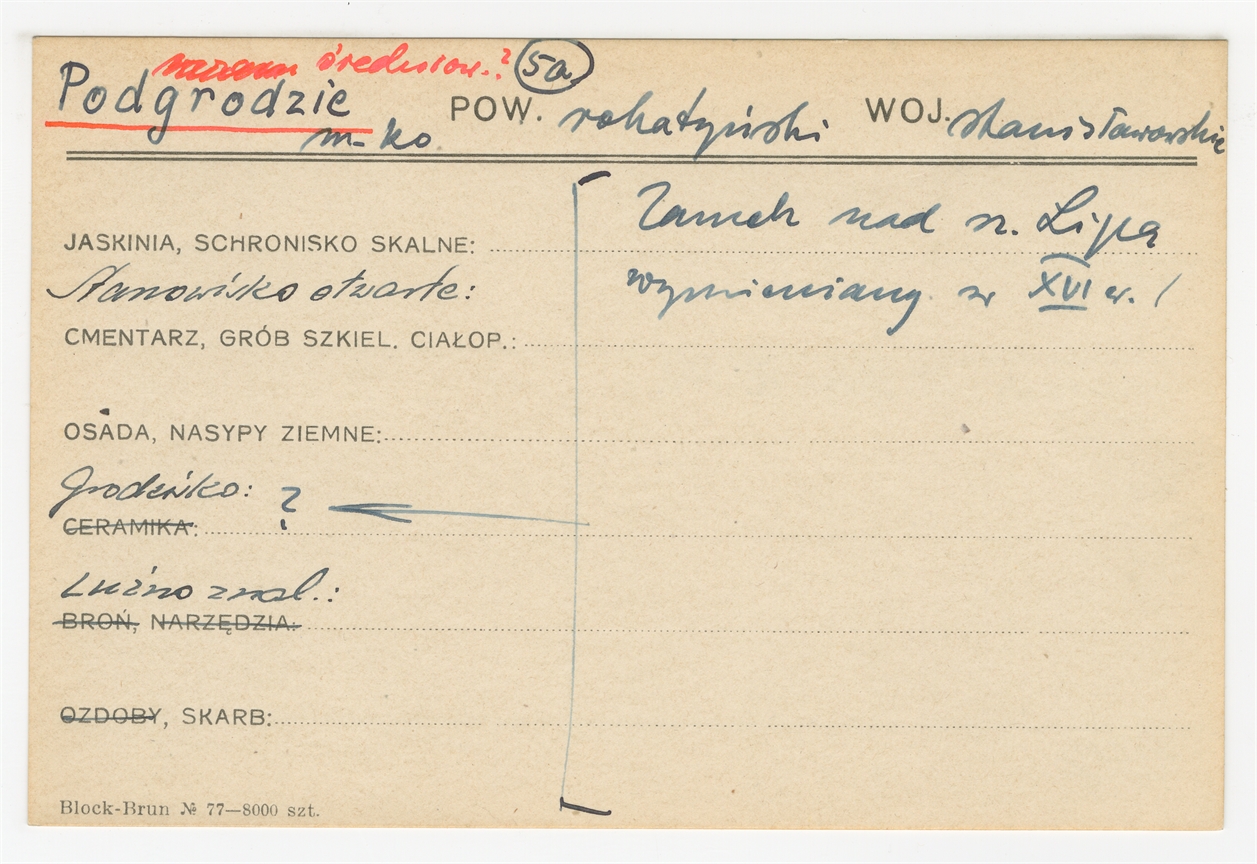 średniow.? 5a
Podgrodzie POW. rohatyński WOJ. stanisławowskie
m-ko
Zamek nad rz. Lipą
JASKINIA, SCHRONISKO SKALNE:
Stanowisko otwarte: wymieniany w XVI w.
CMENTARZ, GRÓB SZKIEL. CIAŁOP.:
OSADA, NASYPY ZIEMNE:
Grodzisko: ?
CERAMIKA:
Luźno znal.:
BROŃ, NARZĘDZIA:
OZDOBY, SKARB:
Block-Brun № 77—8000 szt.